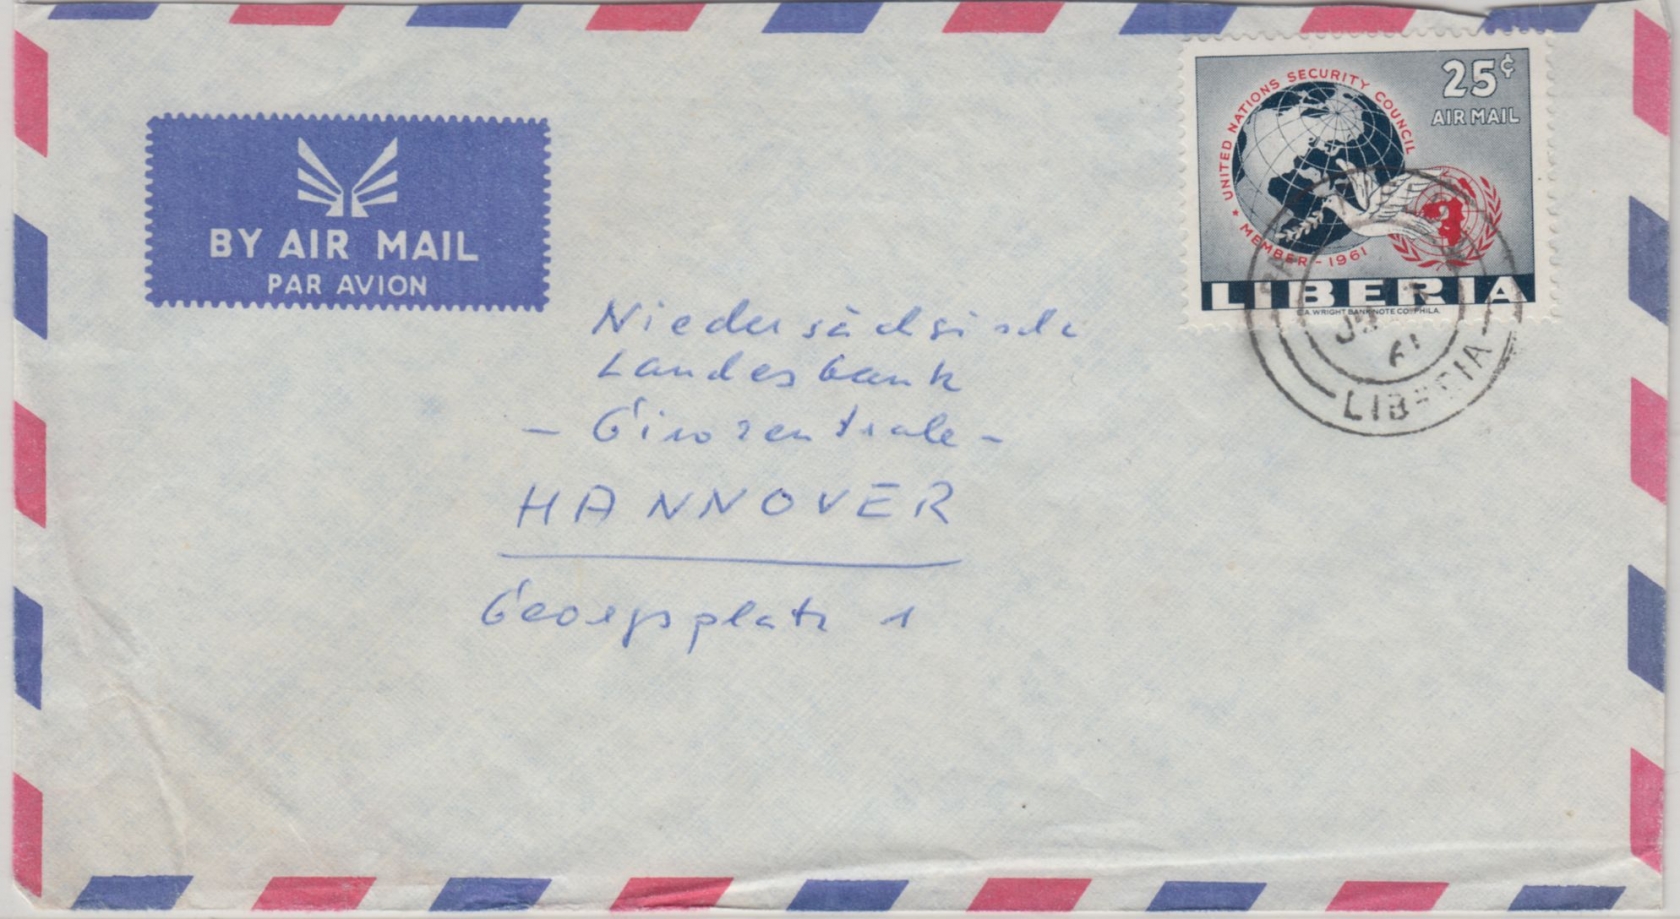 BY AIR MAIL
PAR AVION
25¢
AIR MAIL
★ UNITED NATIONS SECURITY COUNCIL
MEMBER - 1961
LIBERIA
C.A. WRIGHT BANK NOTE CO. PHILA.
61
LIBERIA
Niedersächsische
Landesbank
- Girozentrale -
HANNOVER
Georgsplatz 1